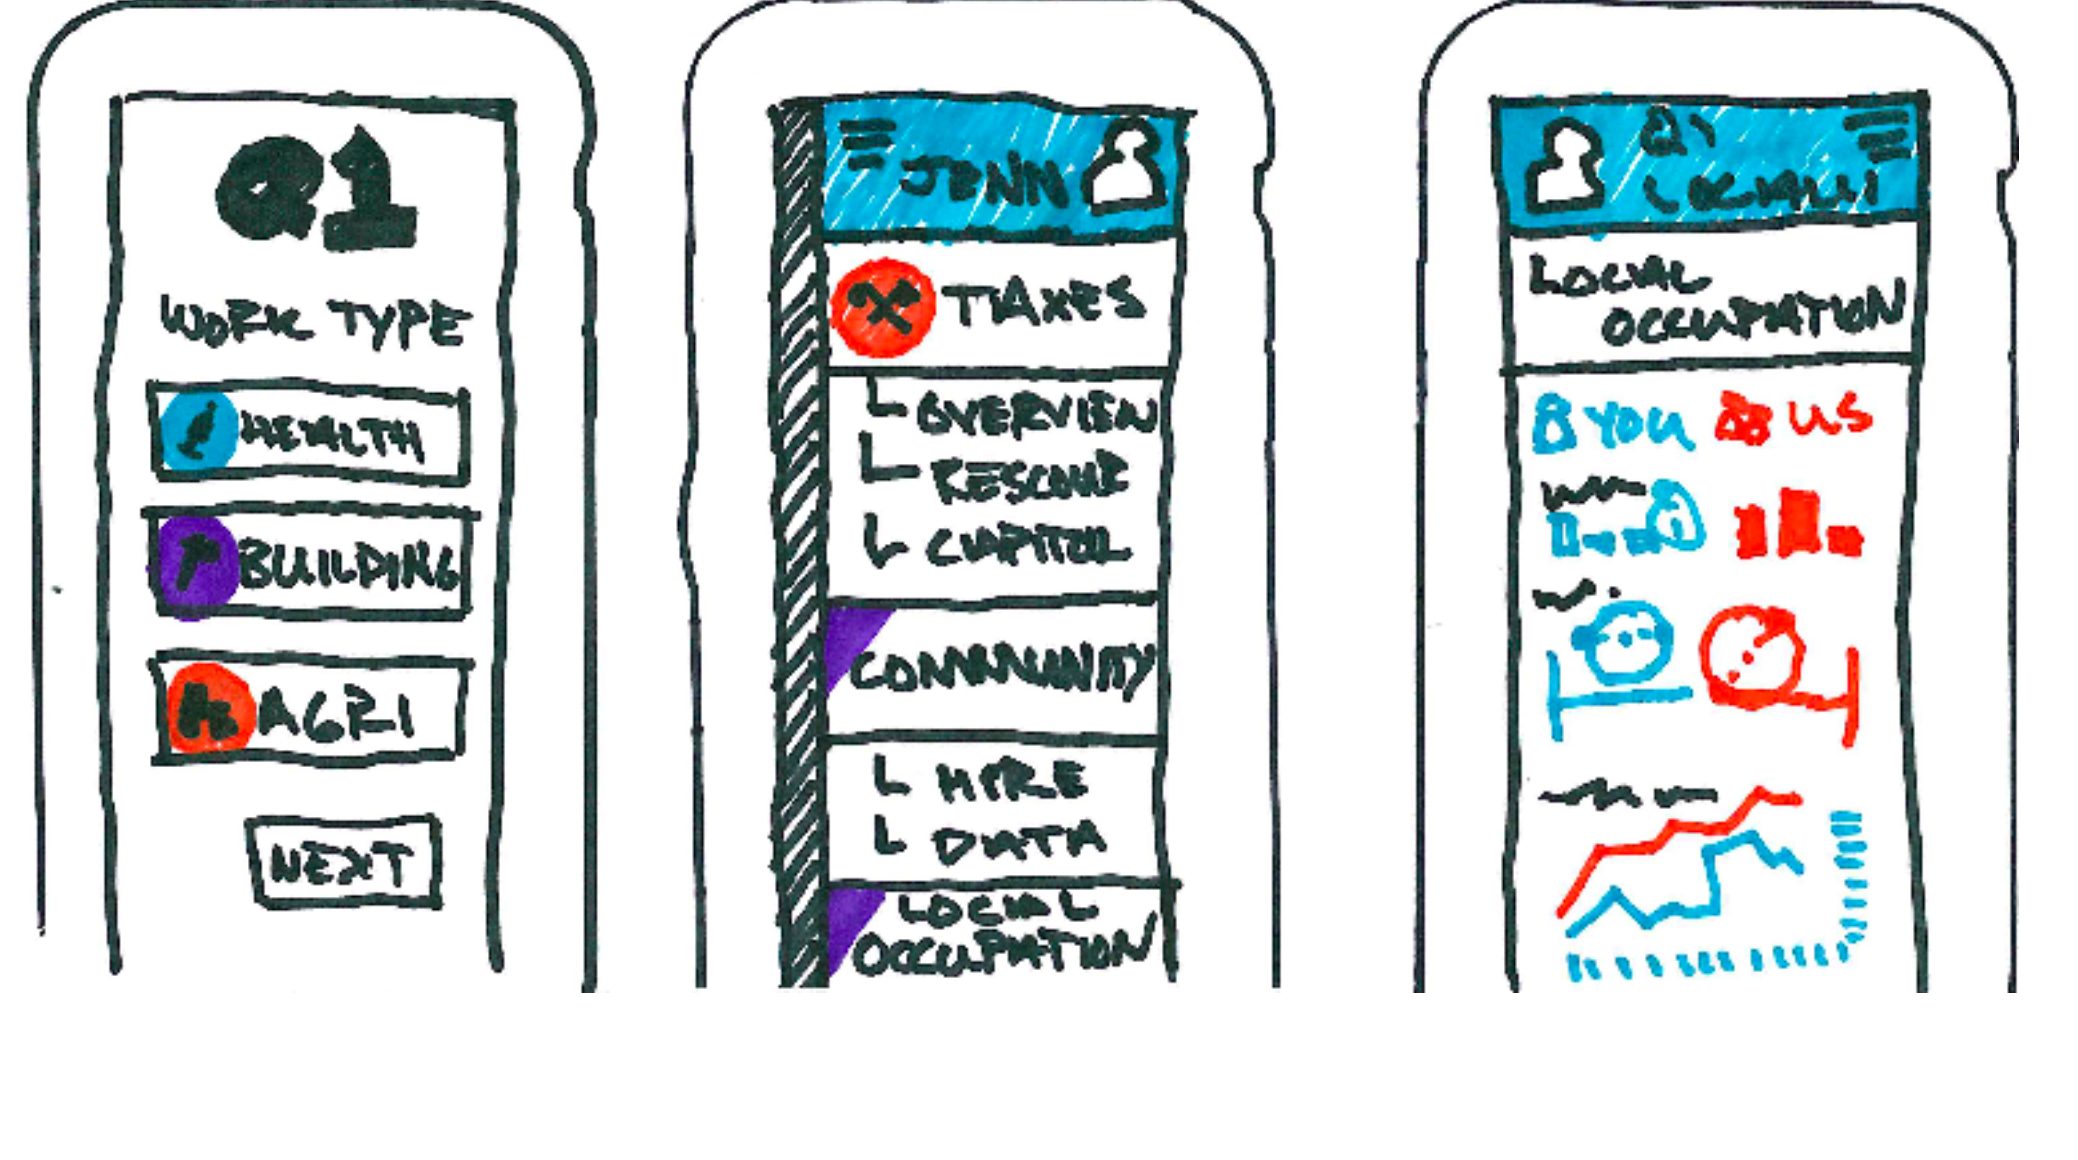 Q1
WORK TYPE
HEALTH
BUILDING
AGRI
NEXT
JENN
TAXES
OVERVIEW
RESCOUR
CAPITOL
COMMUNITY
HIRE
DATA
LOCIAL
OCCUPATION
Q1
LOCIAL
OCCUPATION
YOU US